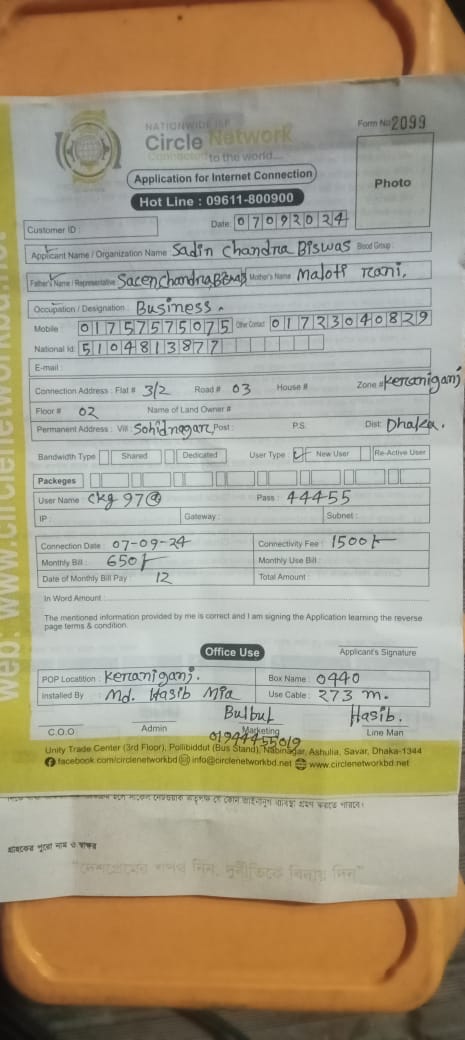 NATIONWIDE ISP
Circle Network
Connected to the world...
Form No 2099
Application for Internet Connection
Hot Line : 09611-800900
Photo
Customer ID :
Date: 07092024
Applicant Name / Organization Name Sadin Chandra Biswas Blood Group :
Father's Name / Representative Sacen Chandra Biswas Mother's Name Maloti Rani,
Occupation / Designation : Business.
Mobile 01757575075 Other Contact 01723040829
National Id 5104813877
E-mail :
Connection Address : Flat # 3/2 Road # 03 House # Zone # Keraniganj
Floor # 02 Name of Land Owner #
Permanent Address : Vill : Sohidnagar, Post : P.S. Dist: Dhaka.
Bandwidth Type Shared Dedicated User Type : New User Re-Active User
Packeges
User Name : Ckg 97@ Pass : 44455
IP : Gateway : Subnet :
Connection Date : 07-09-24 Connectivity Fee : 1500/-
Monthly Bill : 650/- Monthly Use Bill :
Date of Monthly Bill Pay : 12 Total Amount :
In Word Amount :
The mentioned information provided by me is correct and I am signing the Application learning the reverse
page terms & condition.
Office Use
Applicant's Signature
POP Locatition : Keraniganj. Box Name : 0440
Installed By : Md. Hasib Mia Use Cable : 273 m.
Bulbul Hasib.
C.O.O Admin Marketing Line Man
01944455019
Unity Trade Center (3rd Floor), Pollibiddut (Bus Stand), Nabinagar, Ashulia, Savar, Dhaka-1344
facebook.com/circlenetworkbd info@circlenetworkbd.net www.circlenetworkbd.net
গ্রাহকের পুরো নাম ও স্বাক্ষর
"দেশপ্রেমের শপথ নিন, দুর্নীতিকে বিদায় দিন"
web: www.circlenetworkbd.net